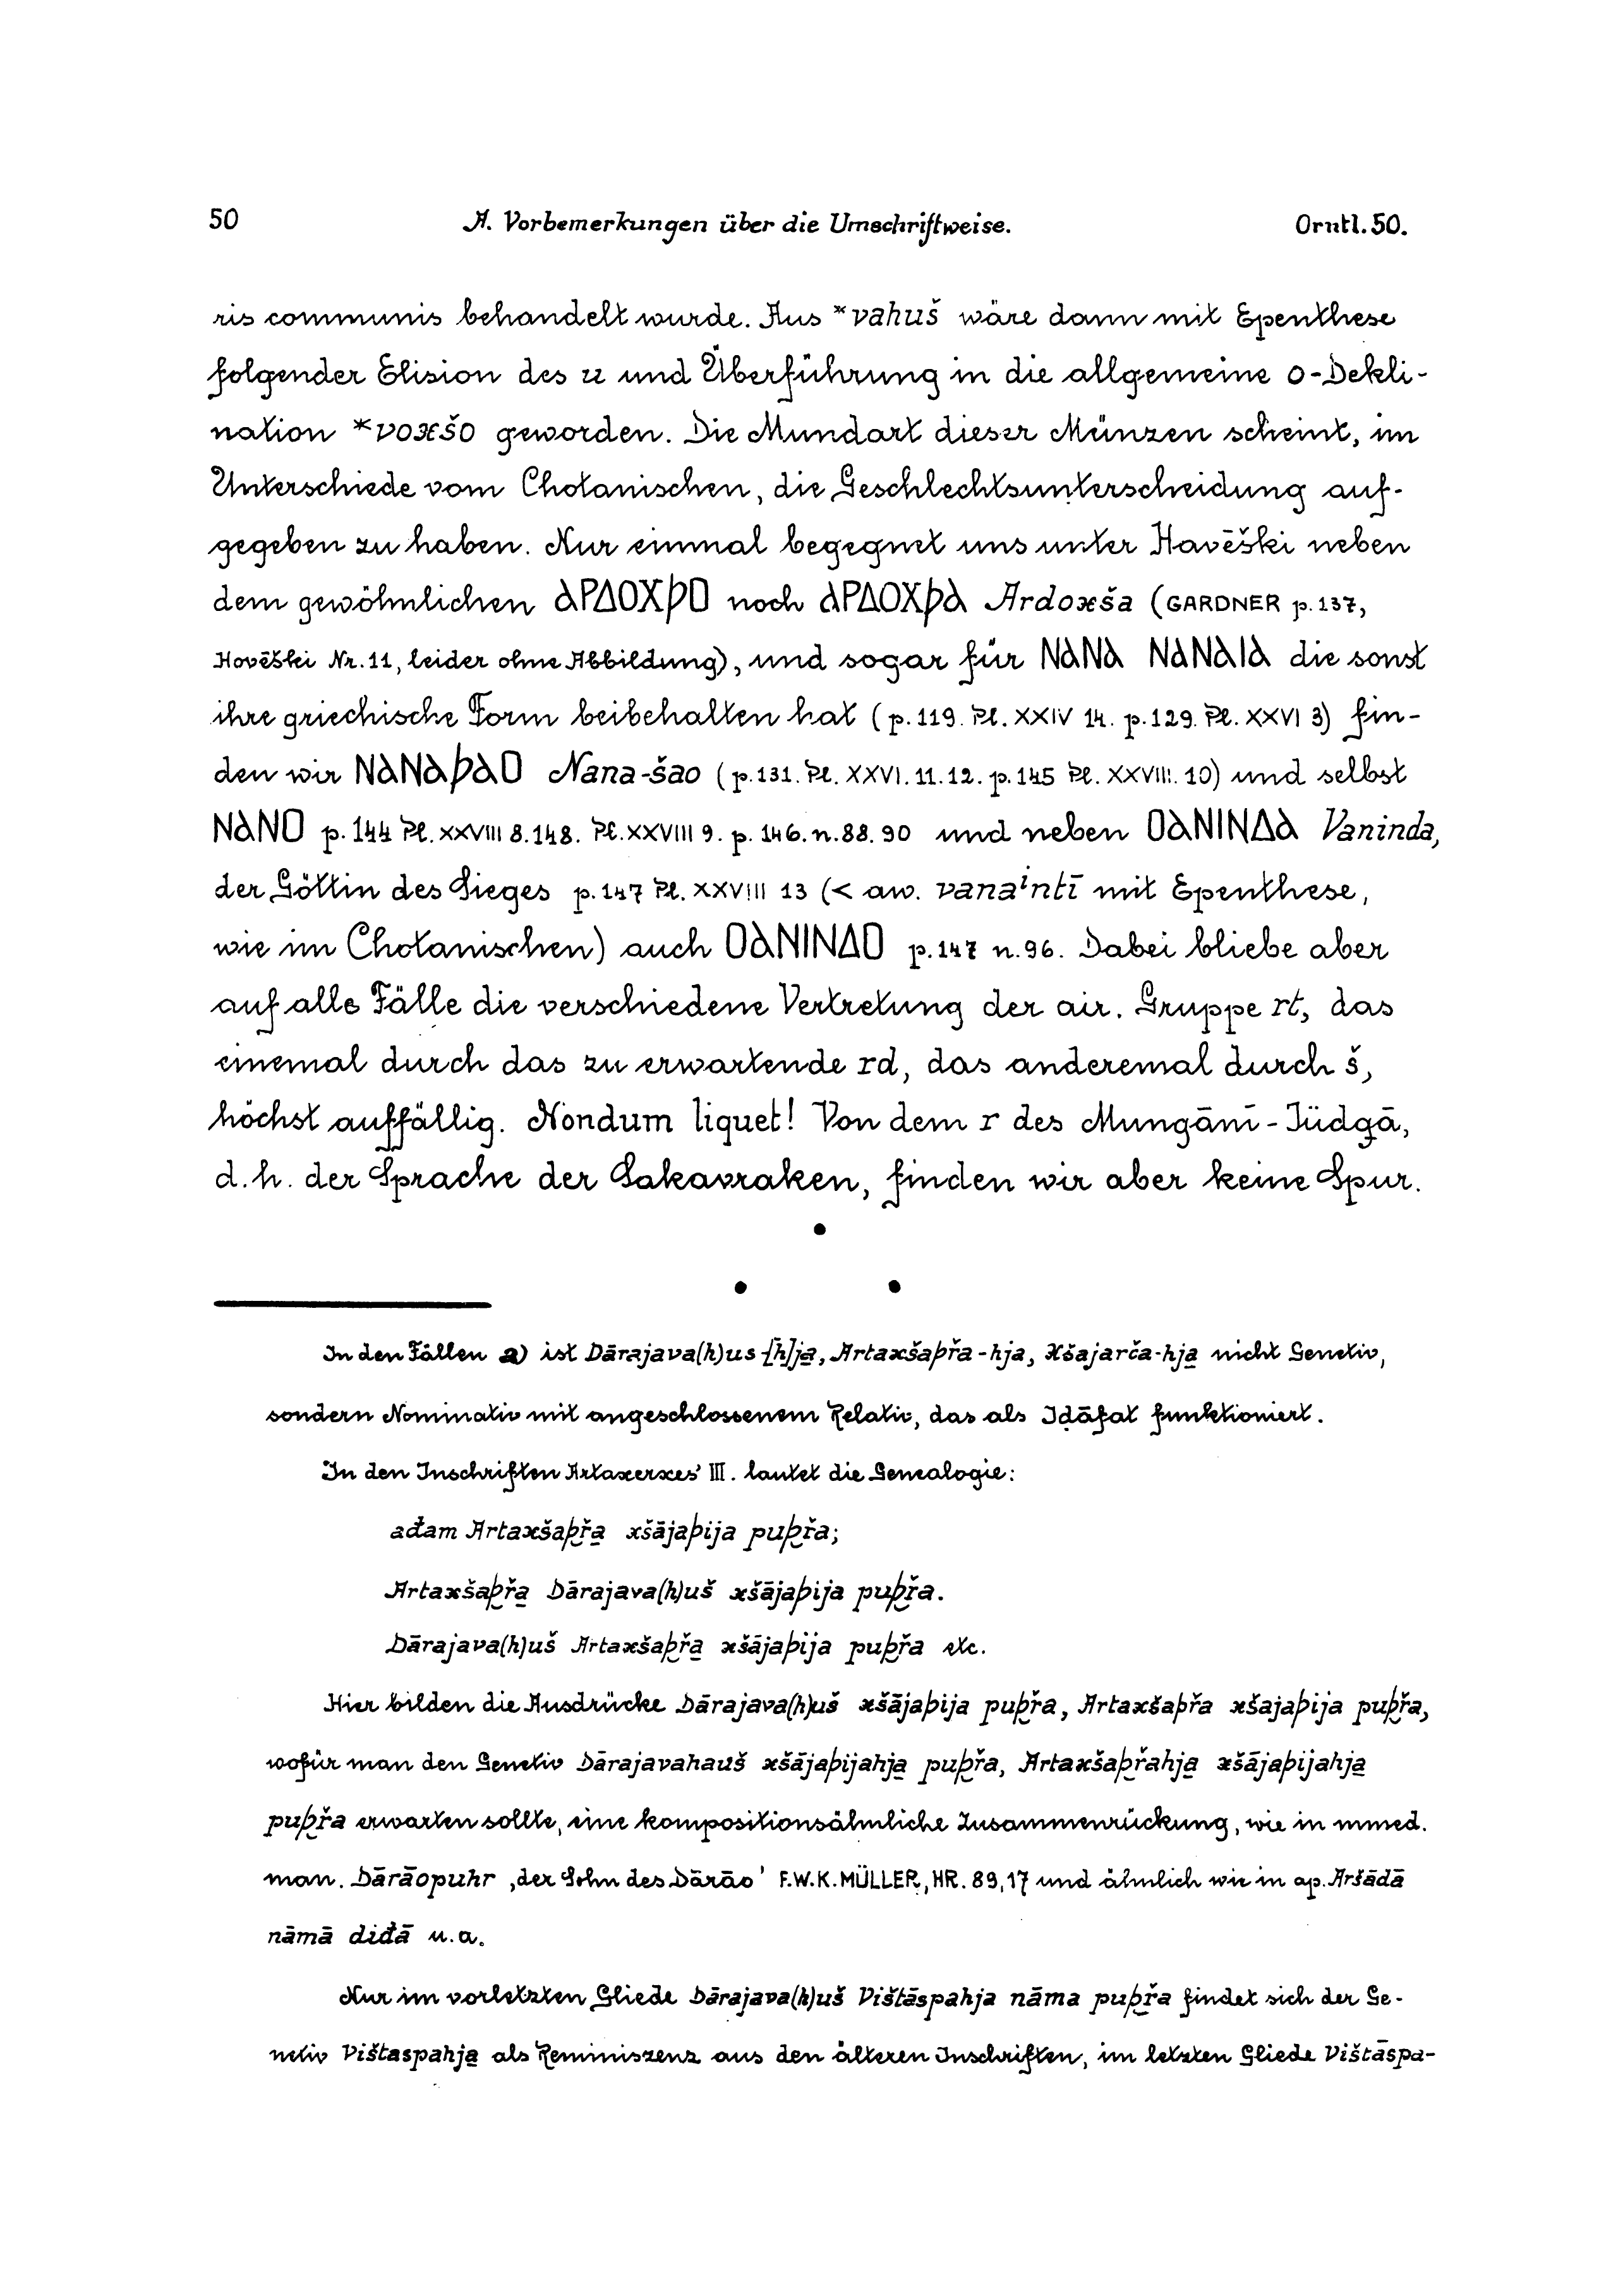 50 A. Vorbemerkungen über die Umschriftweise. Orntl. 50.
ris communis behandelt wurde. Aus *vahuš wäre dann mit Epenthese
folgender Elision des u und Überführung in die allgemeine o-Dekli-
nation *voxšo geworden. Die Mundart dieser Münzen scheint, im
Unterschiede vom Chotanischen, die Geschlechtsunterscheidung auf-
gegeben zu haben. Nur einmal begegnet uns unter Havēški neben
dem gewöhnlichen ΑΡΔΟΧϷΟ noch ΑΡΔΟΧϷΑ Ardoxša (GARDNER p. 137,
Hovēški Nr. 11, leider ohne Abbildung), und sogar für ΝΑΝΑ ΝΑΝΑΙΑ die sonst
ihre griechische Form beibehalten hat (p. 119. Pl. XXIV 14. p. 129. Pl. XXVI 3) fin-
den wir ΝΑΝΑϷΑΟ Nana-šao (p. 131. Pl. XXVI. 11. 12. p. 145 Pl. XXVIII. 10) und selbst
ΝΑΝΟ p. 144 Pl. XXVIII 8. 148. Pl. XXVIII 9. p. 146. n. 88. 90 und neben ΟΑΝΙΝΔΑ Vaninda,
der Göttin des Sieges p. 147 Pl. XXVIII 13 (< aw. vanaⁱntī mit Epenthese,
wie im Chotanischen) auch ΟΑΝΙΝΔΟ p. 147 n. 96. Dabei bliebe aber
auf alle Fälle die verschiedene Vertretung der air. Gruppe rt, das
einemal durch das zu erwartende rd, das anderemal durch š,
höchst auffällig. Nondum liquet! Von dem r des Mungānī-Jüdgā,
d. h. der Sprache der Sakavraken, finden wir aber keine Spur.
In den Fällen a) ist Dārajava(h)us-[h]ja̱, Artaxšaþřa-hja, Xšajarča-hja̱ nicht Genetiv,
sondern Nominativ mit angeschlossenem Relativ, das als Iḍāfat funktioniert.
In den Inschriften Artaxerxes' III. lautet die Genealogie:
ađam Artaxšaþřa̱ xšājaþija puþřa;
Artaxšaþřa̱ Dārajava(h)uš xšājaþija puþřa.
Dārajava(h)uš Artaxšaþřa̱ xšājaþija puþřa etc.
Hier bilden die Ausdrücke Dārajava(h)uš xšājaþija puþřa, Artaxšaþřa xšajaþija puþřa,
wofür man den Genetiv Dārajavahauš xšājaþijahja̱ puþřa, Artaxšaþřahja̱ xšājaþijahja̱
puþřa erwarten sollte, eine kompositionsähnliche Zusammenrückung, wie in mmed.
man. Dārāopuhr ‚der Sohn des Dārāo' F. W. K. MÜLLER, HR. 89,17 und ähnlich wie in ap. Aršādā
nāmā diđā u. a.
Nur im vorletzten Gliede Dārajava(h)uš Vištāspahja nāma puþřa findet sich der Ge-
netiv Vištaspahja̱ als Reminiszenz aus den älteren Inschriften, im letzten Gliede Vištāspa-